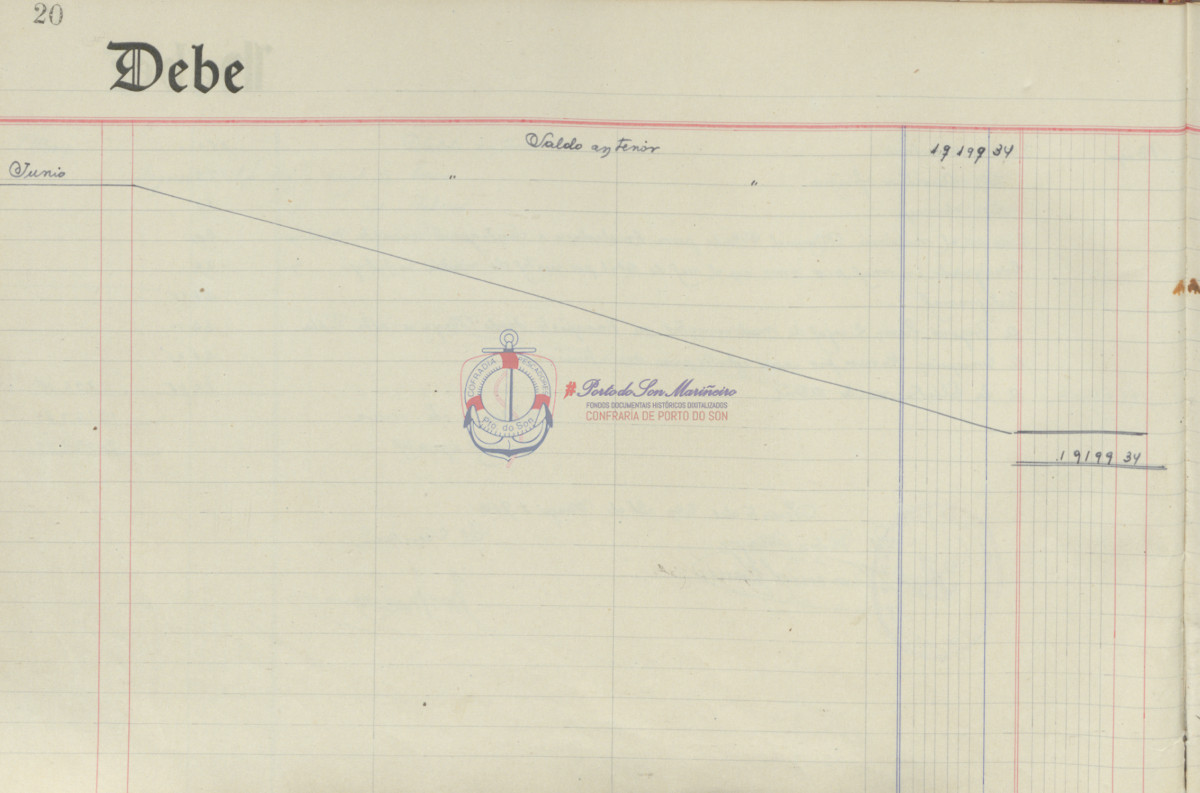 20
Debe
Saldo anterior 19199 34
Junio " "
COFRADIA PESCADORES
Pto. do Son
#PortodoSonMariñeiro
FONDOS DOCUMENTAIS HISTÓRICOS DIXITALIZADOS
CONFRARIA DE PORTO DO SON
19199 34